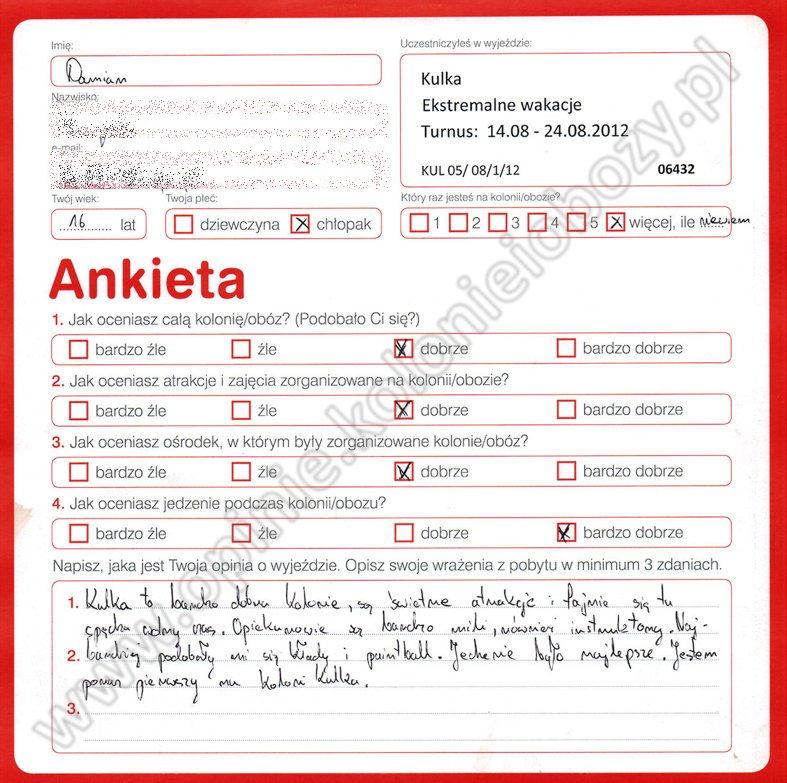 Imię:
Damian
Nazwisko:
e-mail:
Uczestniczyłeś w wyjeździe:
Kulka
Ekstremalne wakacje
Turnus: 14.08 - 24.08.2012
KUL 05/ 08/1/12 06432
Twój wiek:
16 lat
Twoja płeć:
dziewczyna X chłopak
Który raz jesteś na kolonii/obozie?
1 2 3 4 5 X więcej, ile niewiem
Ankieta
1. Jak oceniasz całą kolonię/obóz? (Podobało Ci się?)
bardzo źle źle X dobrze bardzo dobrze
2. Jak oceniasz atrakcje i zajęcia zorganizowane na kolonii/obozie?
bardzo źle źle X dobrze bardzo dobrze
3. Jak oceniasz ośrodek, w którym były zorganizowane kolonie/obóz?
bardzo źle źle X dobrze bardzo dobrze
4. Jak oceniasz jedzenie podczas kolonii/obozu?
bardzo źle źle dobrze X bardzo dobrze
Napisz, jaka jest Twoja opinia o wyjeździe. Opisz swoje wrażenia z pobytu w minimum 3 zdaniach.
1. Kulka to bardzo dobra kolonie, są świetne atrakcje i fajnie się tu
spędza wolny czas. Opiekunowie są bardzo mili, również instruktorzy. Naj-
2. bardziej podobały mi się kłady i paintball. Jedzenie było najlepsze. Jestem
poraz pierwszy na koloni Kulka.
3.
www.opinie.kolonieiobozy.pl